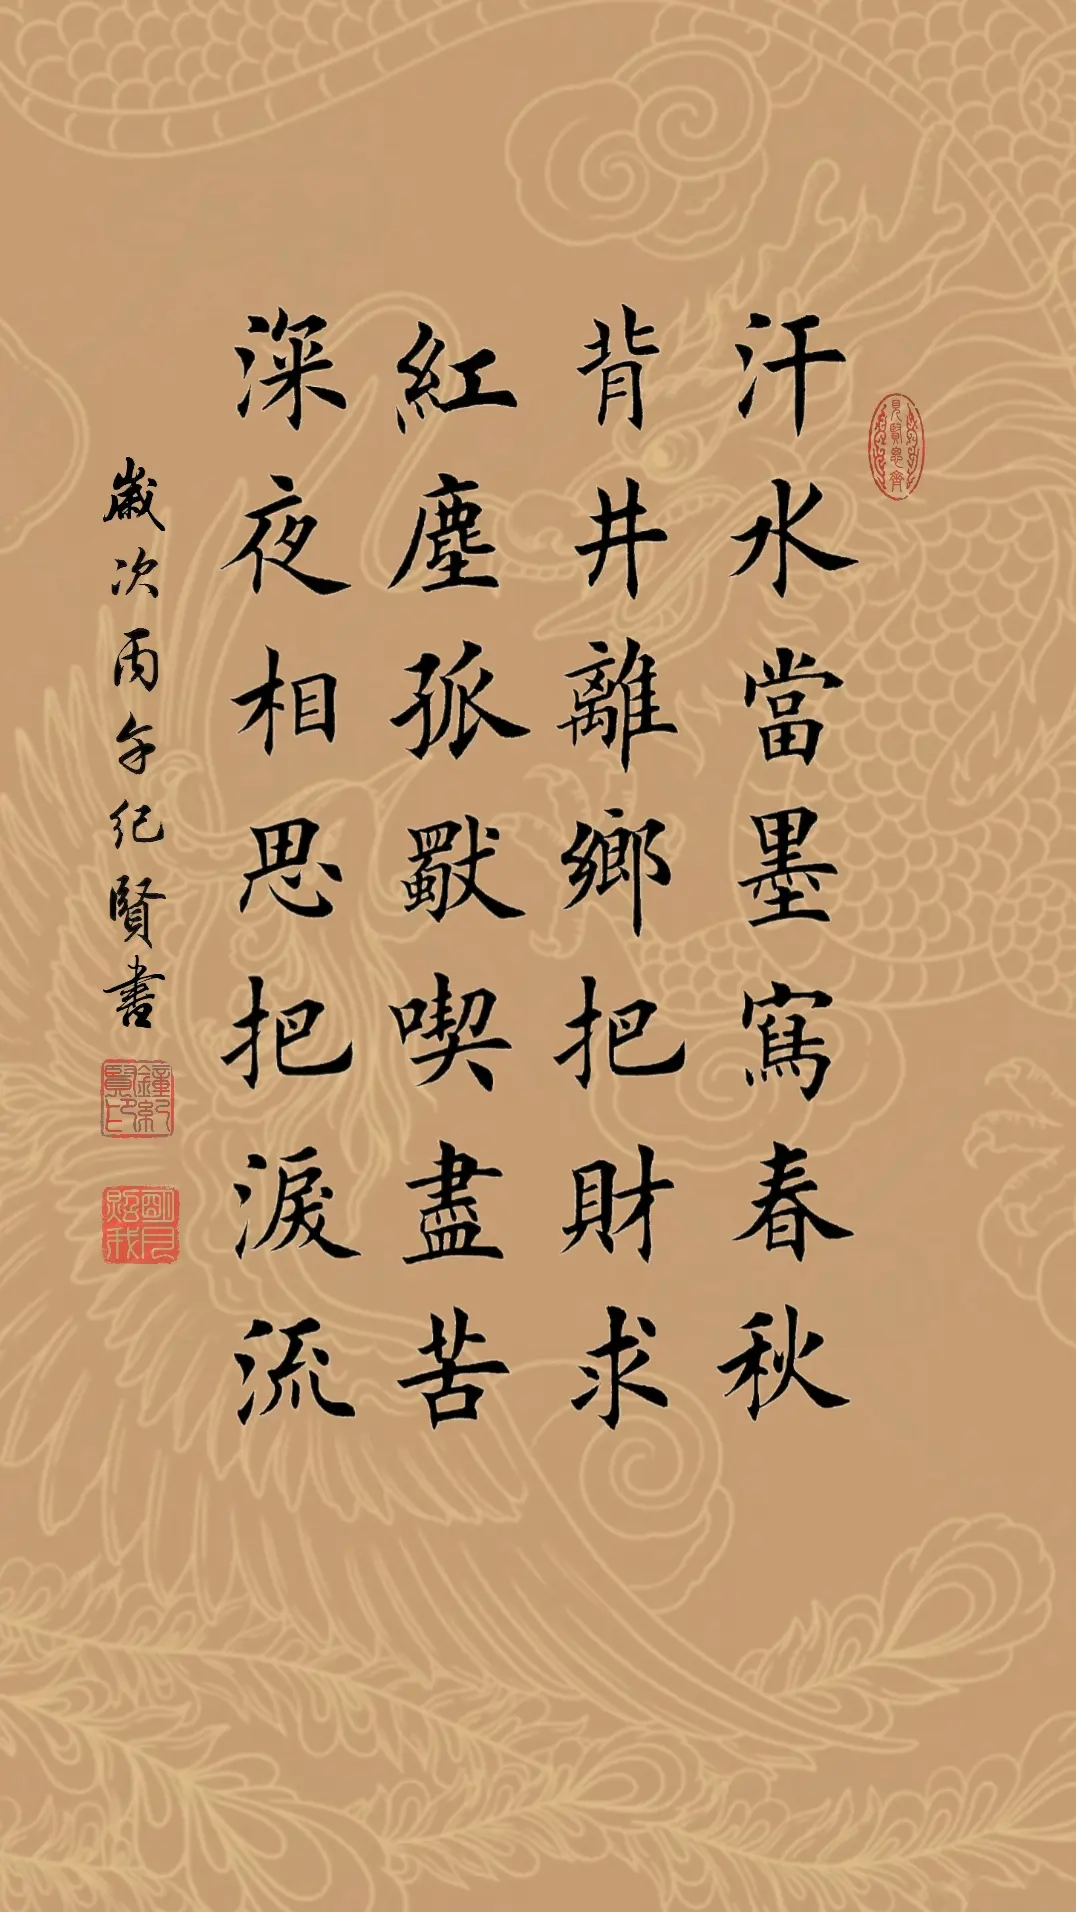 汗水當墨寫春秋
背井離鄉把財求
紅塵孤獸喫盡苦
深夜相思把淚流
歲次丙午紀賢書
見賢思齊
鐘紀賢印